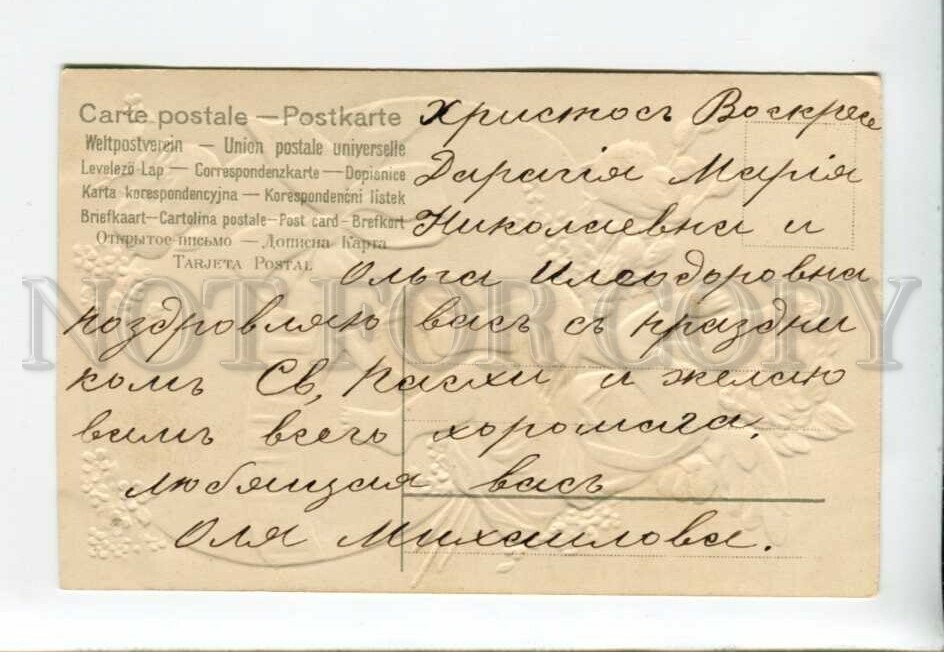 Carte postale — Postkarte
Weltpostverein — Union postale universelle
Levelező Lap — Correspondenzkarte — Dopisnice
Karta korespondencyjna — Korespondenčni listek
Briefkaart — Cartolina postale — Post card — Brefkort
Открытое письмо — Дописна Карта
TARJETA POSTAL
Христосъ Воскресе
Дарагія Марія
Николаевна и
Ольга Илеодоровна
поздровляю васъ съ праздни
комъ Св, Пасхи и желаю
вамъ всего хорошаго,
любящая васъ
Оля Михаилова.
NOT FOR COPY